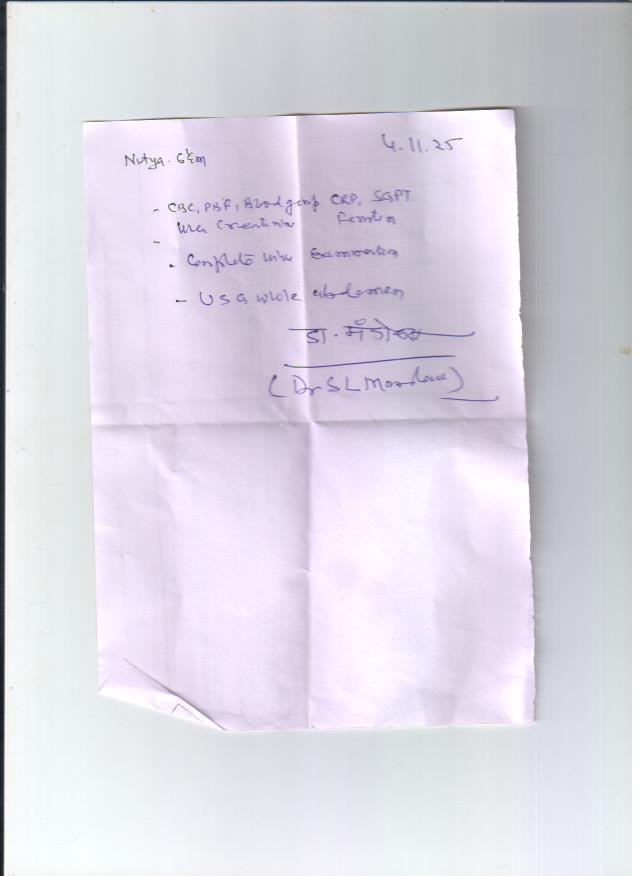 4.11.25
Nitya. 6½m
- CBC, PBF, Blood group, CRP, SGPT
Urea Creatinine Ferritin
-
. Complete Urine Examination
- USG whole abdomen
डा. मँडोवरा
(Dr SL Mandowara)